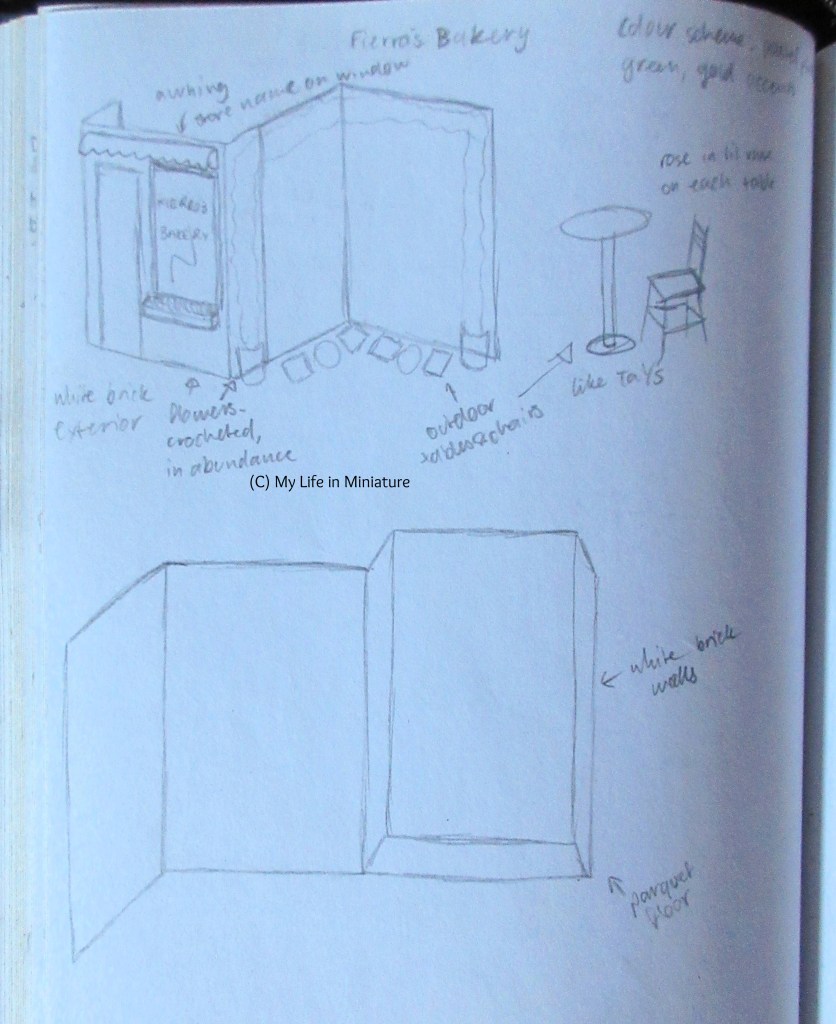 Fierro's Bakery
Colour scheme -
green, gold accents
awning
store name on window
rose in lil vase
on each table
FIERRO'S
BAKERY
white brick
exterior
flowers-
crocheted,
in abundance
outdoor
tables & chairs
like Tay's
(C) My Life in Miniature
white brick
walls
parquet
floor